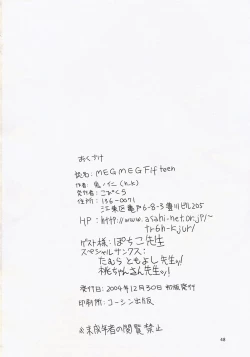 おくづけ
誌名：MEGMEGFifteen
作者：鬼ノ仁(K.K)
発行者：こびくら
住所：136-0071
江東区亀戸6-8-3豊川ビル205
HP：http://www.asahi-net.or.jp/~
tr6h-kjur/
ゲスト様：ぽちこ先生
スペシャルサンクス：
たむらともよし先生ッ!
桃ちゃんさん先生ッ!
発行日：2004年12月30日 初版発行
印刷所：コーシン出版
&未成年者の閲覧禁止